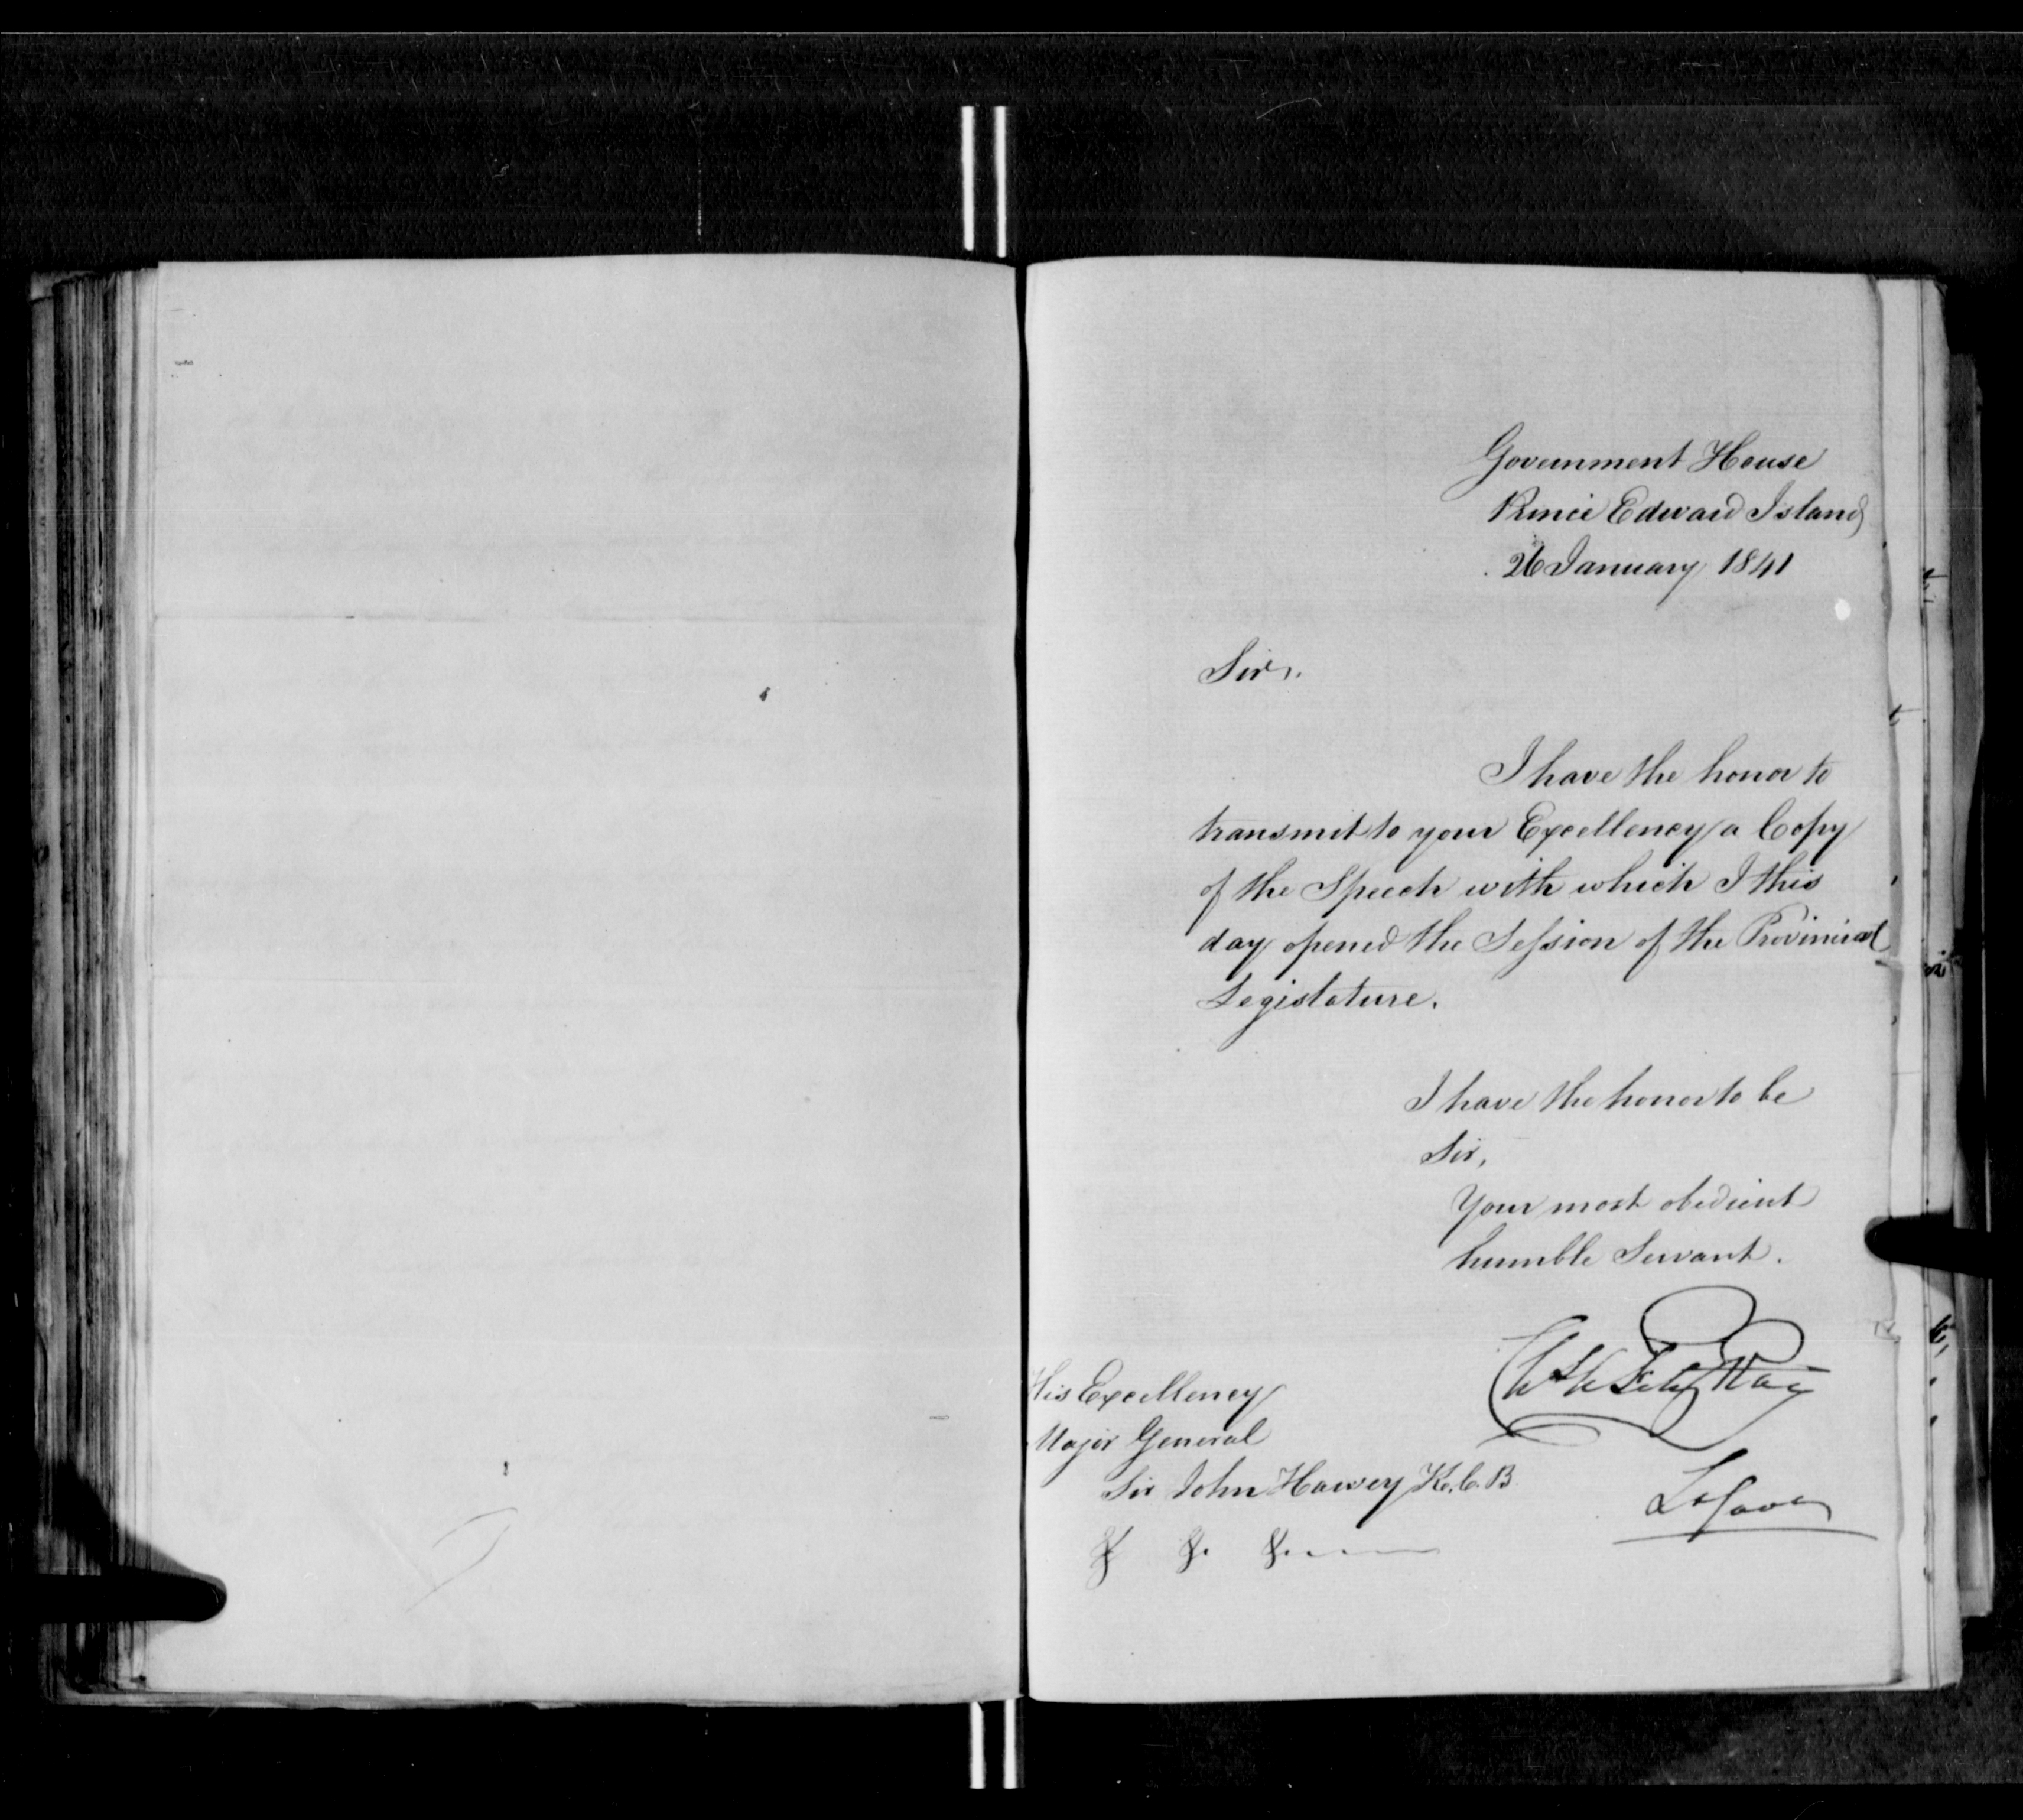 Government House
Prince Edward Island
26 January 1841
Sir,
I have the honor to
transmit to your Excellency a Copy
of the Speech with which I this
day opened the Session of the Provincial
Legislature.
I have the honor to be
Sir,
Your most obedient
humble Servant.
Fitz Roy
His Excellency
Major General
Sir John Harvey K.C.B
Lt Gover
&c &c &c